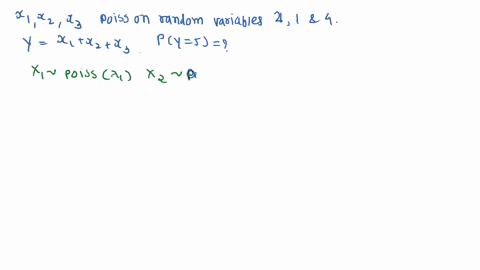 x₁, x₂, x₃ poisson random variables 2, 1 & 4.
Y = x₁ + x₂ + x₃ . P(Y=5) = ?
X₁ ~ poiss(λ₁) X₂ ~ p